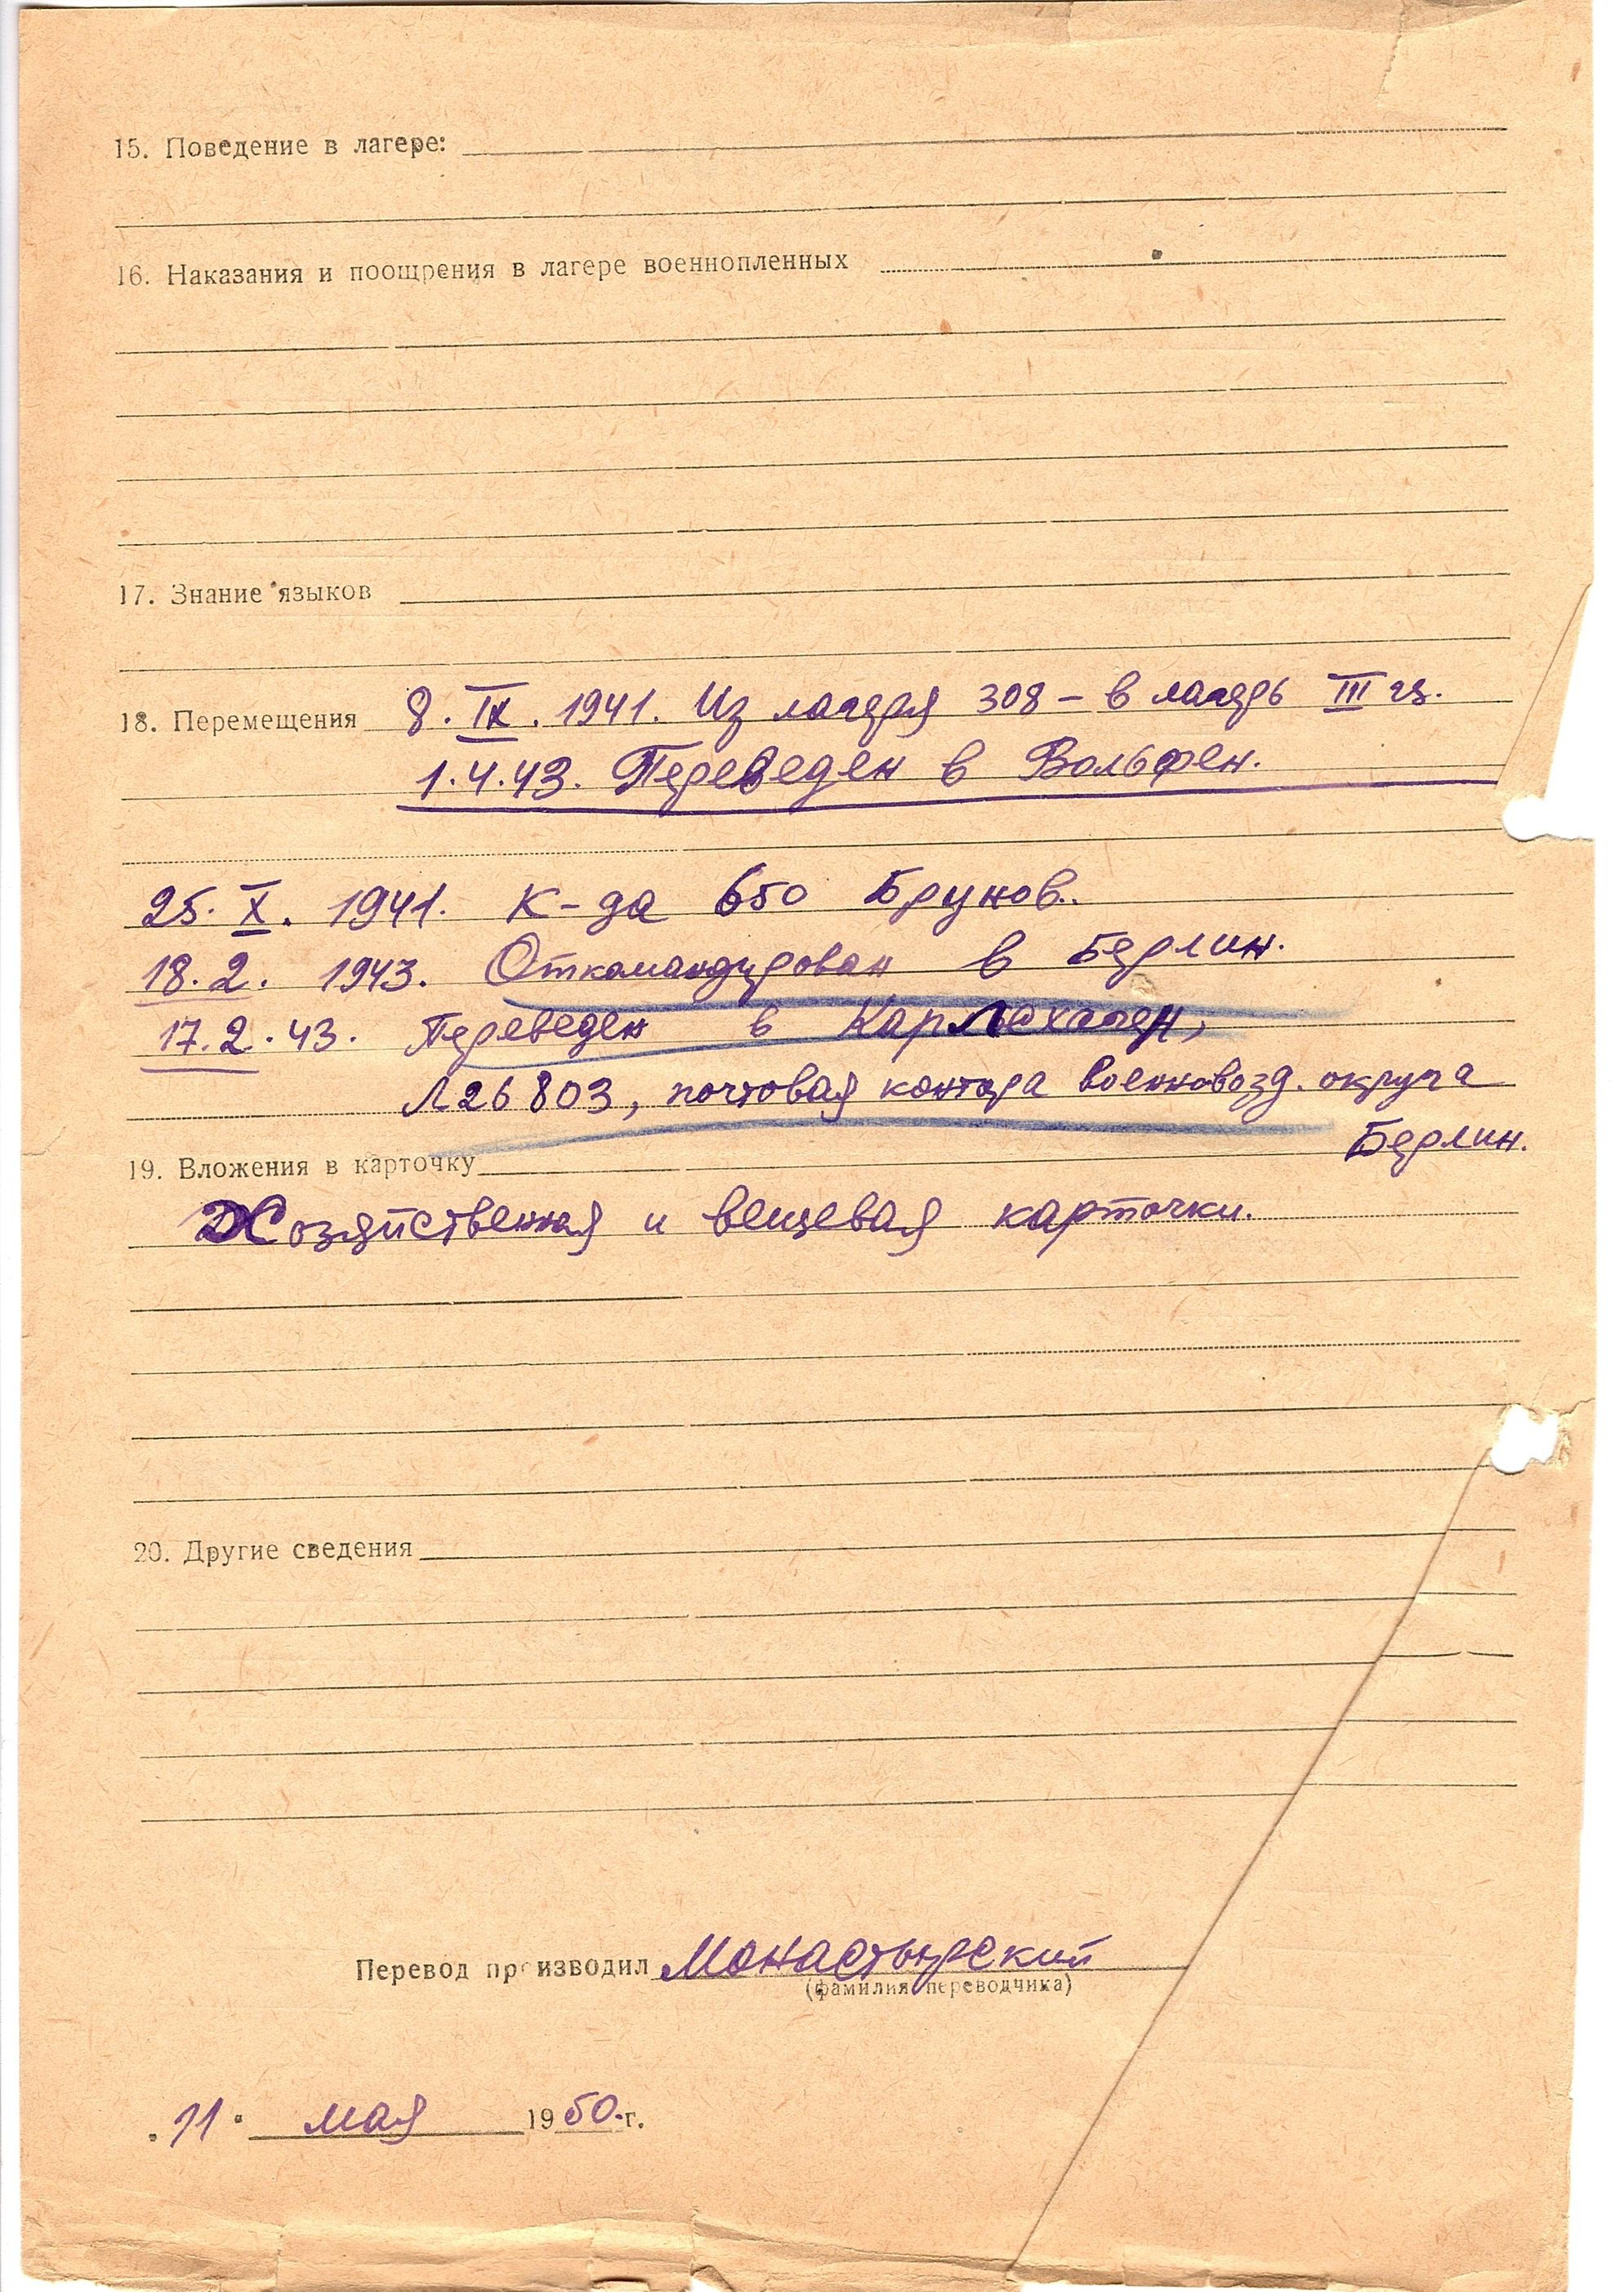 15. Поведение в лагере:
16. Наказания и поощрения в лагере военнопленных
17. Знание языков
18. Перемещения 8. IX. 1941. Из лагеря 308 – в лагерь III ц.
1.4.43. Переведен в Вольфен.
25. X. 1941. К-да 650 Брунов..
18.2. 1943. Откомандирован в Берлин.
17.2.43. Переведен в
Л26803, почтовая контора военновозд. округа
Берлин.
19. Вложения в карточку
Хозяйственная и вещевая карточки.
20. Другие сведения
Перевод производил Монастырский
(фамилия переводчика)
„11“ мая 1950.г.